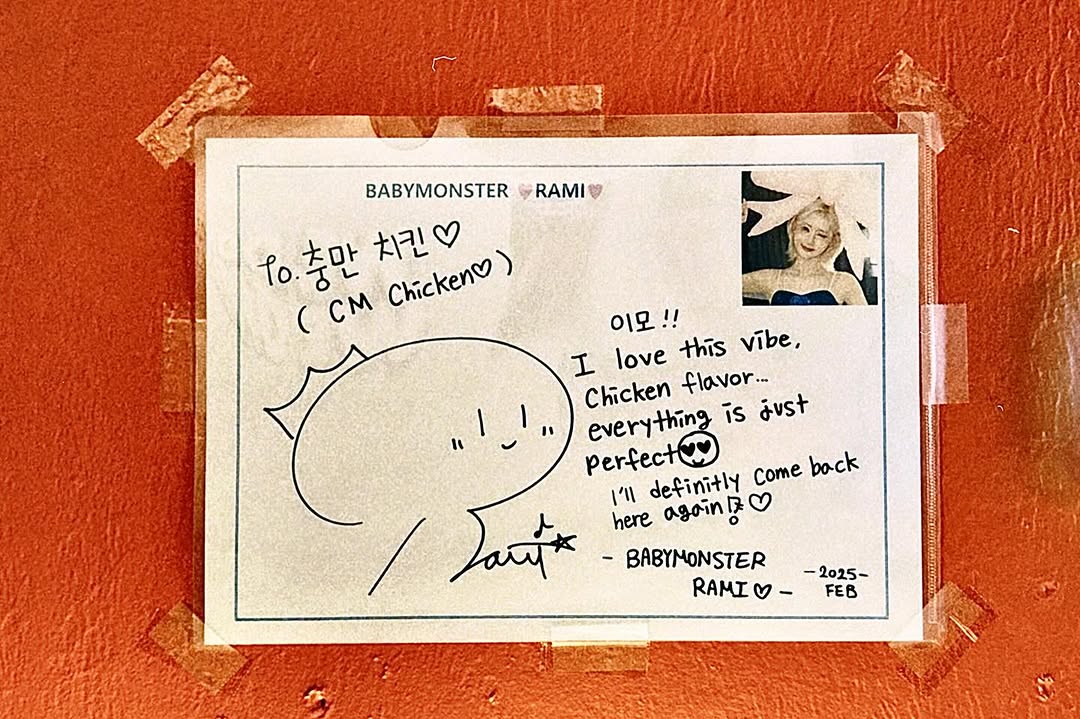 BABYMONSTER 🩷RAMI🩷
To. 충만 치킨♡
( CM Chicken♡ )
이모!!
I love this vibe,
Chicken flavor...
everything is just
perfect😍
I'll definitly come back
here again!?♡
- BABYMONSTER
RAMI♡ -
-2025-
FEB